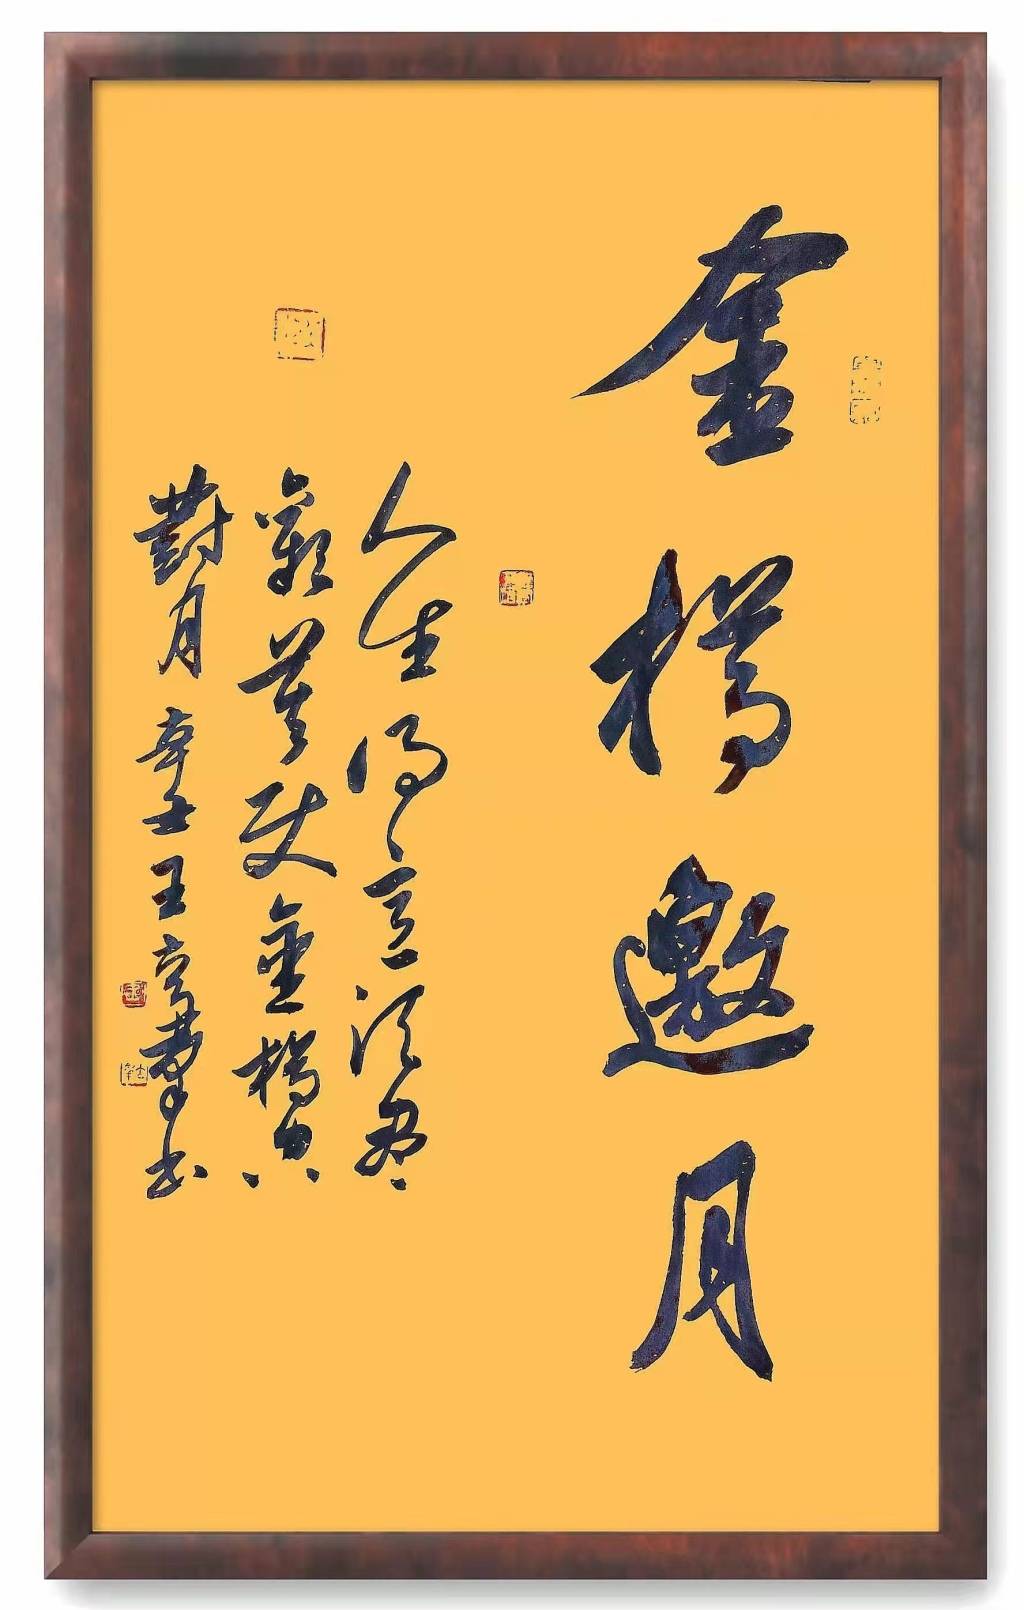 金樽邀月
人生得意须尽
歡莫使金樽空
對月 辛丑王書